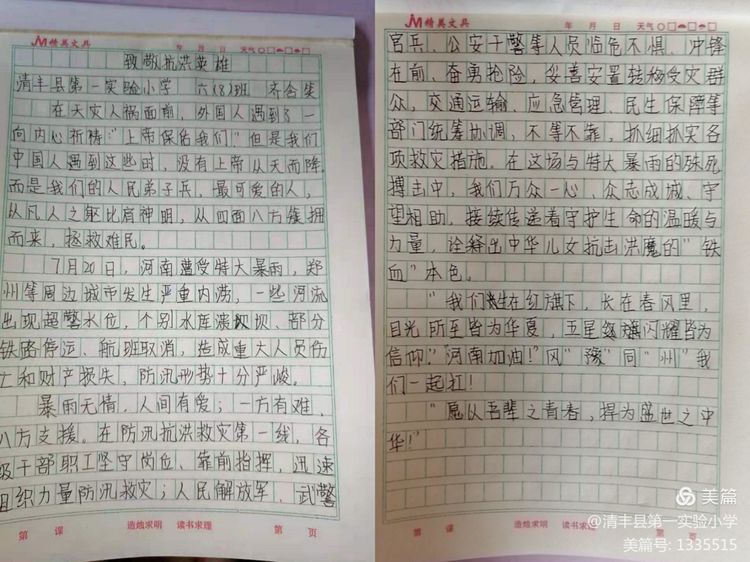 精美文具
年 月 日 天气
致敬抗洪英雄
清丰县第一实验小学 六(8)班 齐合笑
在天灾人祸面前，外国人遇到了一
向内心祈祷："上帝保佑我们！"但是我们
中国人遇到这些时，没有上帝从天而降，
而是我们的人民弟子兵，最可爱的人，
以凡人之躯比肩神明，从四面八方簇拥
而来，拯救难民。
7月20日，河南遭受特大暴雨，郑
州等周边城市发生严重内涝，一些河流
出现超警水位，个别水库溃坝、部分
铁路停运、航班取消，造成重大人员伤
亡和财产损失，防汛形势十分严峻。
暴雨无情，人间有爱；一方有难，
八方支援。在防汛抗洪救灾第一线，各
级干部职工坚守岗位、靠前指挥，迅速
组织力量防汛救灾；人民解放军、武警
第 课 造烛求明 读书求理 第 页
精美文具
年 月 日 天气
官兵、公安干警等人员临危不惧、冲锋
在前、奋勇抢险，妥善安置转移受灾群
众，交通运输、应急管理、民生保障等
部门统筹协调，不等不靠，抓细抓实各
项救灾措施。在这场与特大暴雨的殊死
搏击中，我们万众一心、众志成城、守
望相助，接续传递着守护生命的温暖与
力量，诠释出中华儿女抗击洪魔的"铁
血"本色。
"我们生在红旗下，长在春风里，
目光所至皆为华夏，五星红旗闪耀皆为
信仰。""河南加油！"风"豫"同"州"我
们一起扛！
"愿以吾辈之青春，捍为盛世之中
华！"
第 课 造烛求明 读书求理 第 页
美篇
@清丰县第一实验小学
美篇号: 1335515